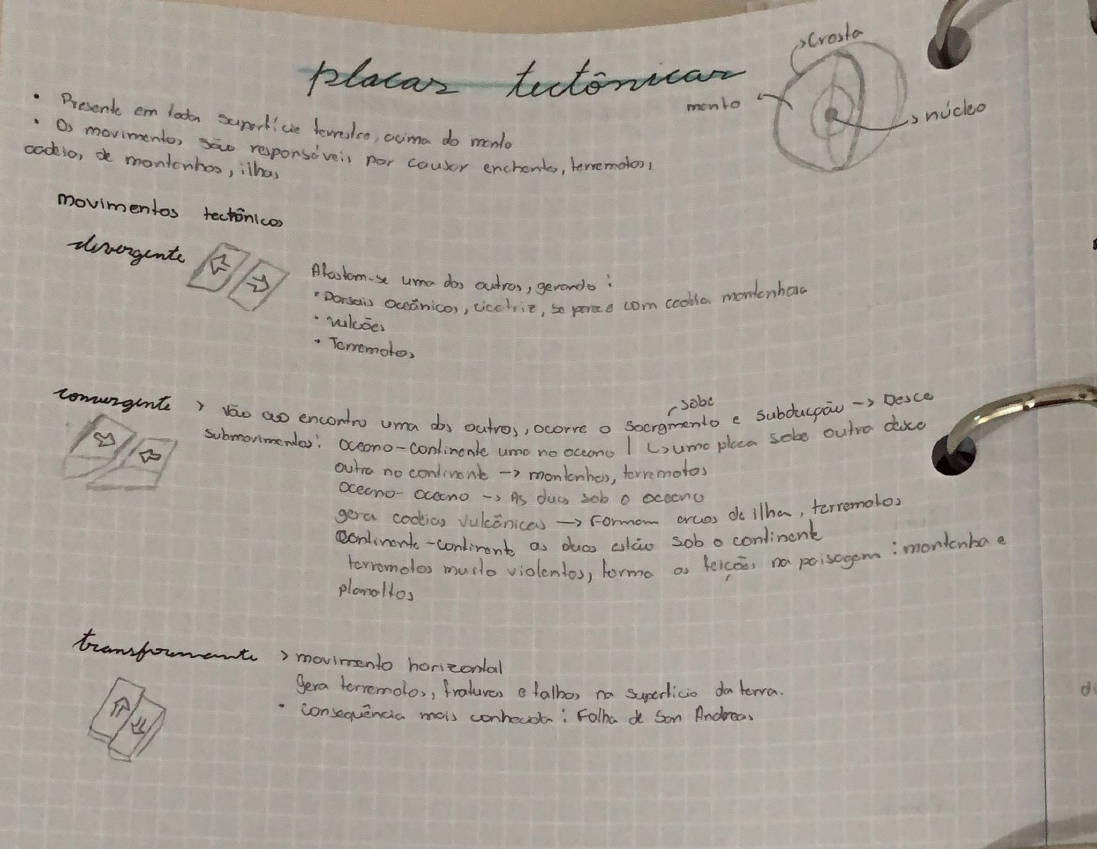 placas tectônicas
Crosta
manto
núcleo
• Presente em toda superfície terrestre, acima do manto
• Os movimentos são responsáveis por causar enchentes, terremotos,
cadeias de montanhas, ilhas
movimentos tectônicos
divergente
Afastam-se uma das outras, gerando:
• Dorsais Oceânicas, cicatriz, se parece com cadeia montanhosa
• Vulcões
• Terremotos
convergente > Vão ao encontro uma das outras, ocorre o soergmento e subducpão → Desce
sobe
submovimentos: oceano-continente uma no oceano | ↳ uma placa sobe outra desce
outra no continente → montanhas, terremotos
oceano-oceano → As duas sob o oceano
gera cadeias vulcânicas → Formam arcos de ilha, terremotos
Continente-continente as duas estão sob o continente
terremotos muito violentos, forma as feições na paisagem: montanha e
planaltos
transformante > movimento horizontal
Gera terremotos, fraturas e falhas na superfície da terra.
• Consequência mais conhecida: Falha de San Andreas